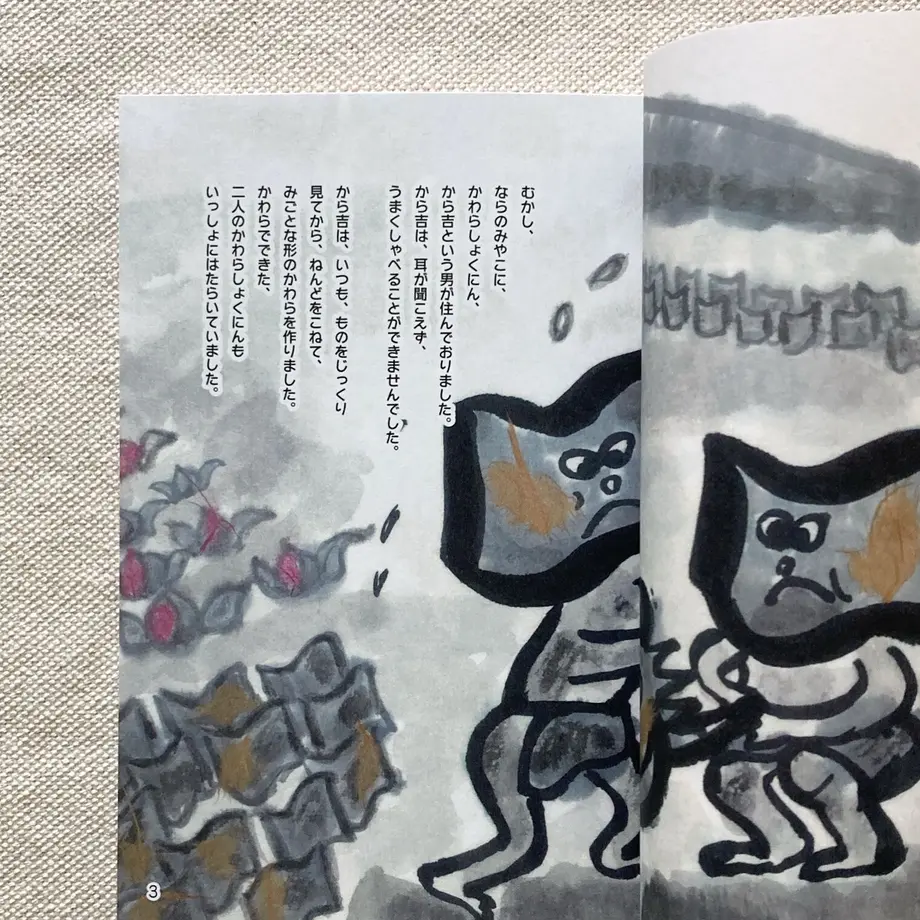 むかし、
ならのみやこに、
かわらしょくにん、
から吉という男が住んでおりました。
から吉は、耳が聞こえず、
うまくしゃべることができませんでした。
から吉は、いつも、ものをじっくり
見てから、ねんどをこねて、
みごとな形のかわらを作りました。
かわらでできた、
二人のかわらしょくにんも
いっしょにはたらいていました。
3